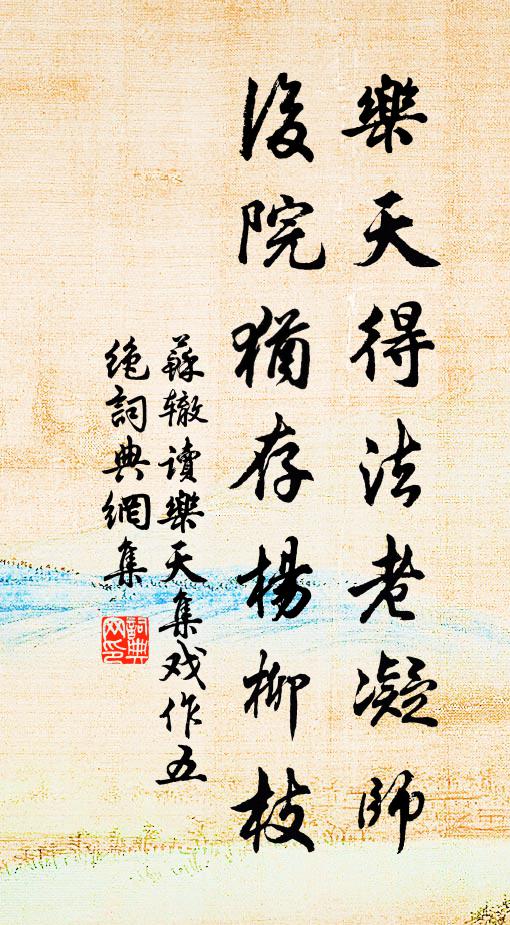 樂天得法老凝師
後院猶存楊柳枝
蘇辙讀樂天集戏作五
絶詞典網集
詞典网印